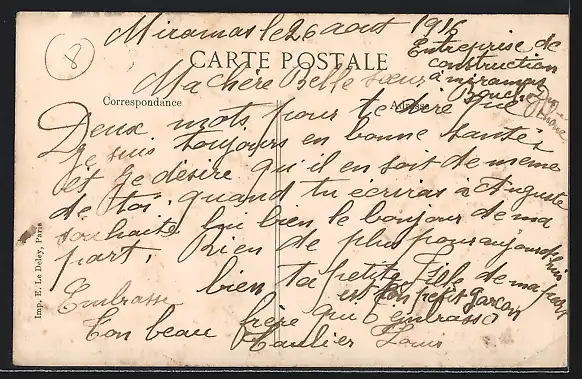 Miramas le 26 aout 1916
8
CARTE POSTALE
Entreprise de
construction
à miramas
Bouches Du
Rhône
Ma chère Belle sœur
Correspondance
Adresse
Deux mots pour te dire que
je suis toujours en bonne santée
et je désire qu'il en soit de meme
de toi. quand tu écriras à Auguste
souhaite lui bien le bonjour de ma
part. Rien de plus pour aujourd'hui
Embrasse bien ta petite Fille de ma part
est ton petit garçon
Ton beau frère qui t'embrasse
Louis
Imp. E. Le Deley, Paris